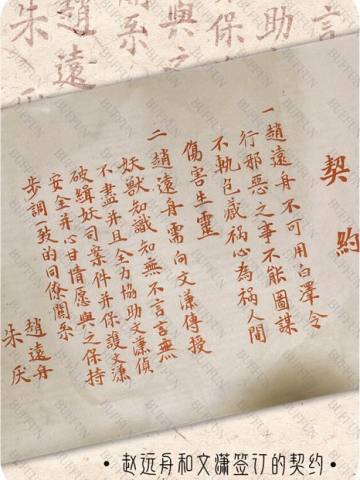 契約
一趙遠舟不可用白澤令
行邪惡之事不能圖謀
不軌包藏祸心為祸人間
傷害生靈
二趙遠舟需向文潇傳授
妖獸知識知無不言言無
不盡并且全力協助文潇偵
破緝妖司案件并保護文潇
安全并心甘情愿與之保持
步調一致的同僚關系
趙遠舟
朱厌
•赵远舟和文潇签订的契约•